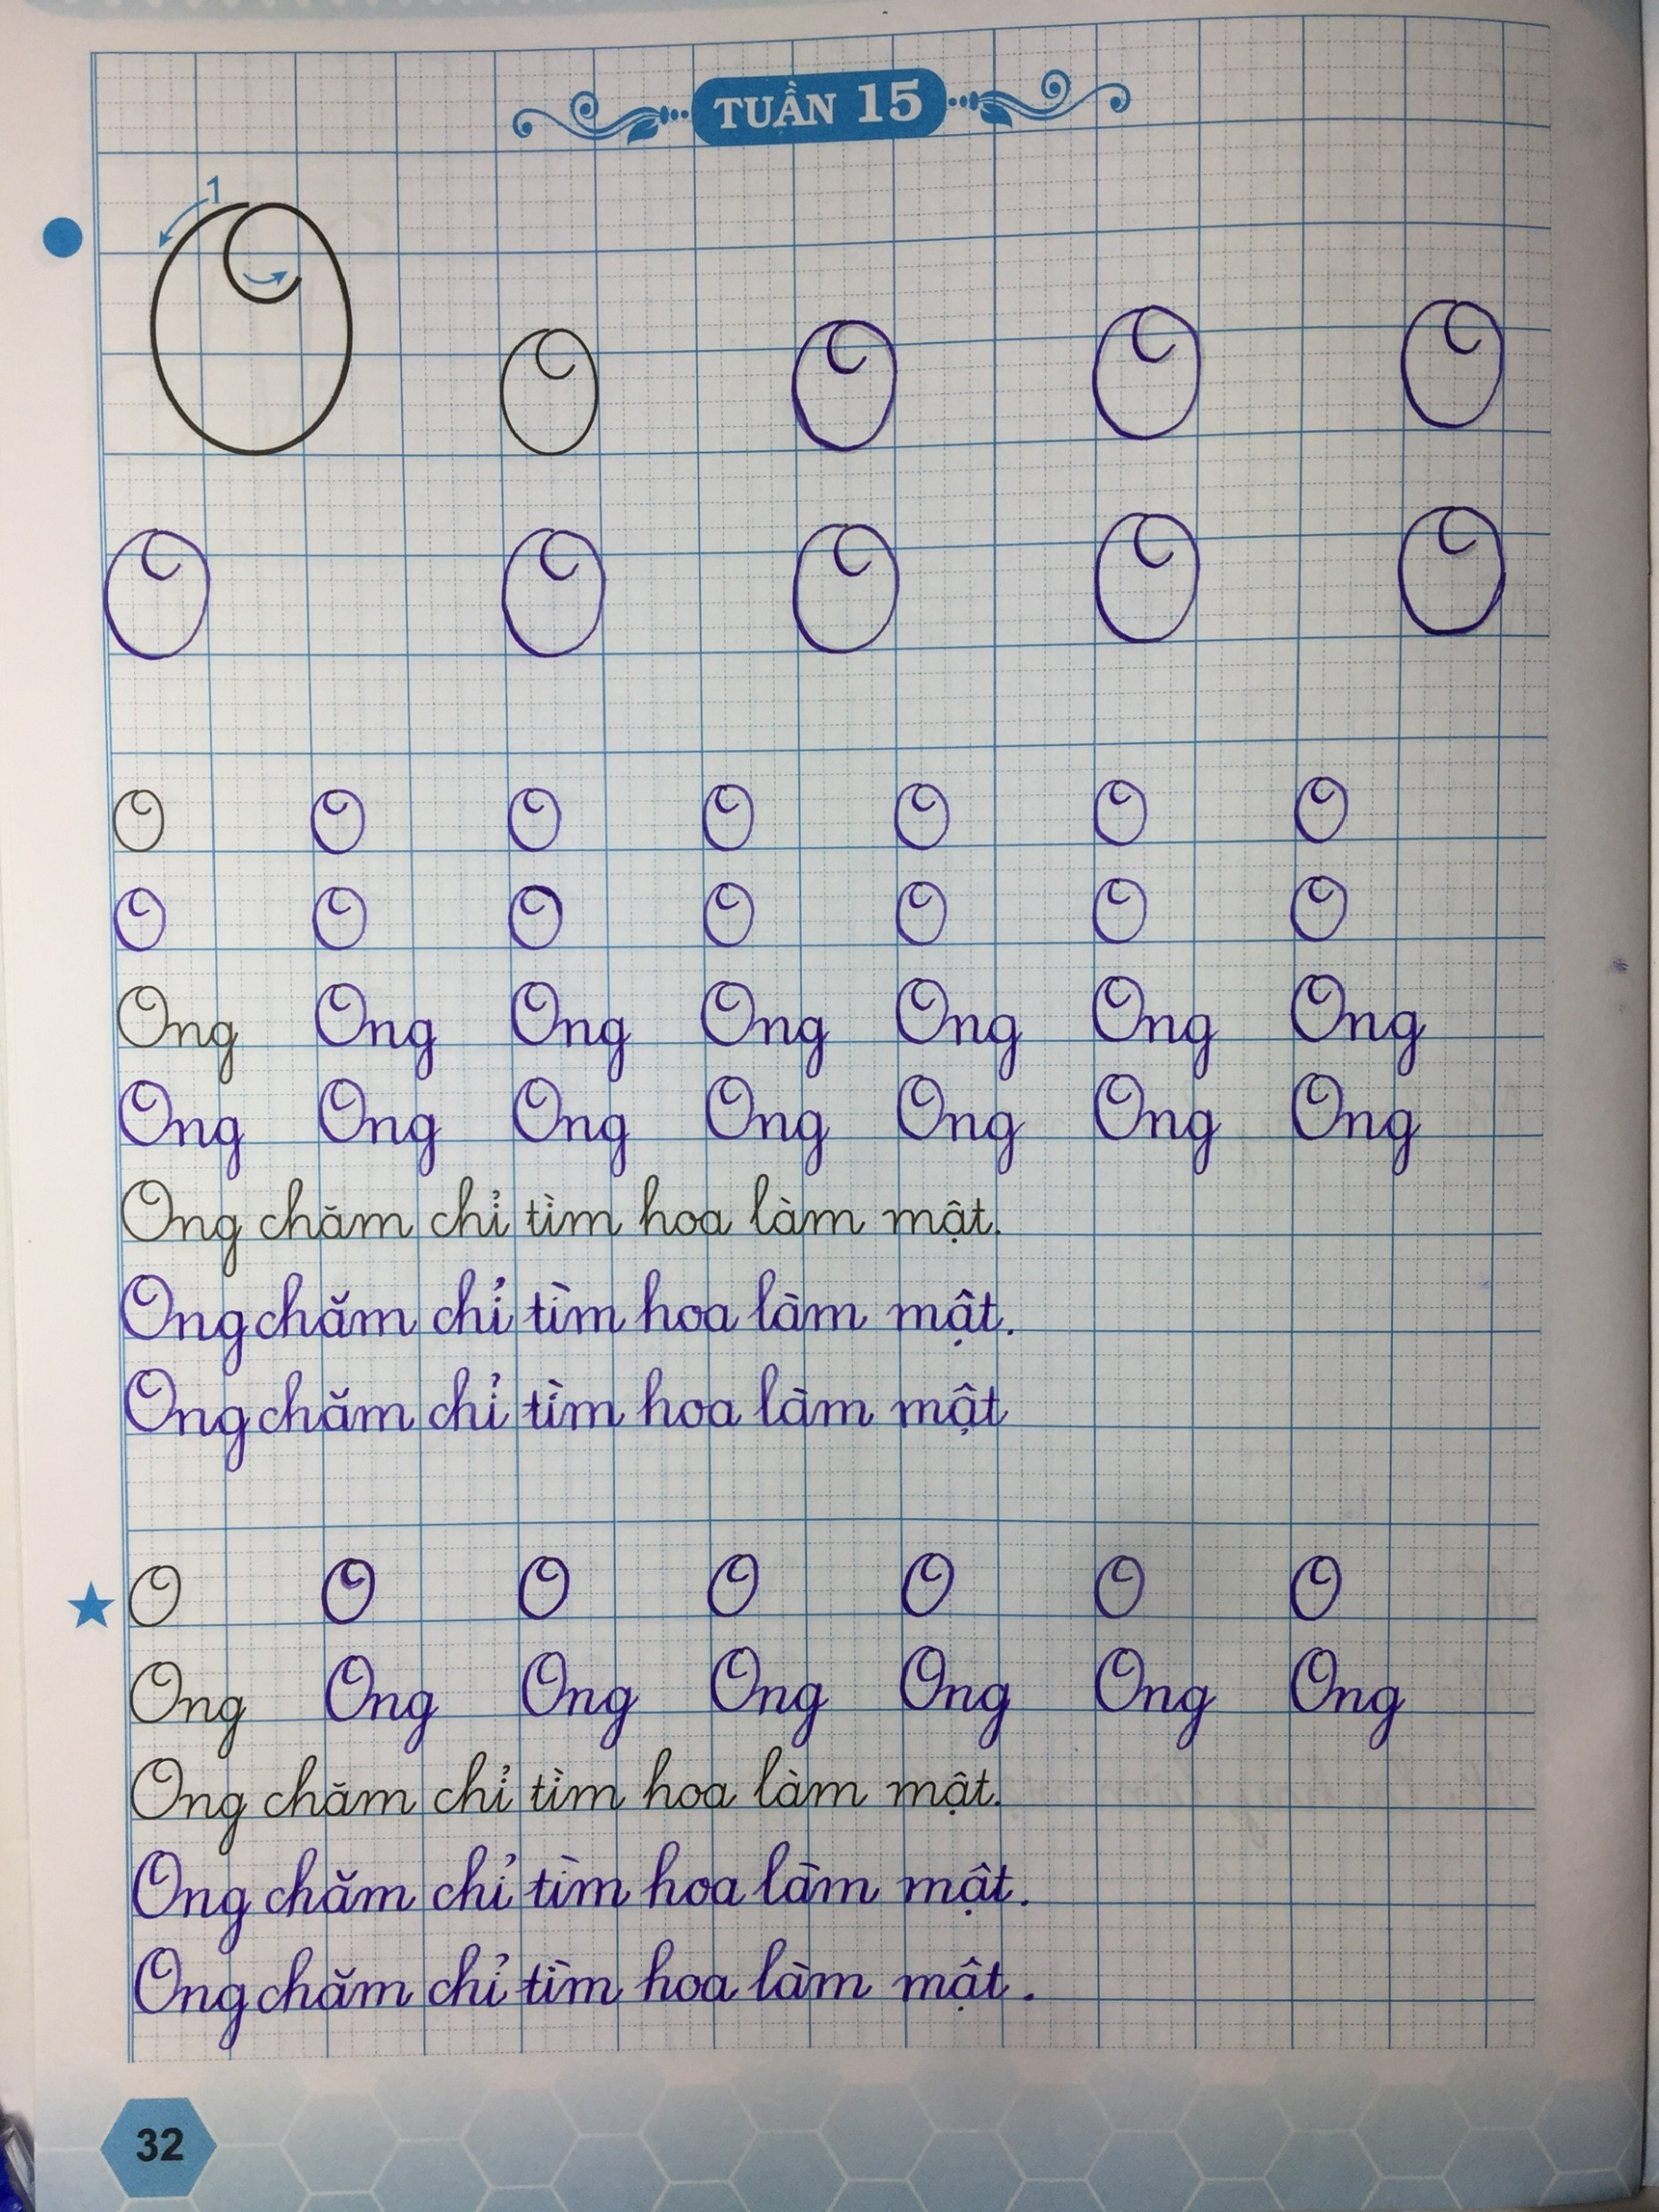 TUẦN 15
1
O O O O O
O O O O O
O O O O O O O
O O O O O O O
Ong Ong Ong Ong Ong Ong Ong
Ong Ong Ong Ong Ong Ong Ong
Ong chăm chỉ tìm hoa làm mật.
Ong chăm chỉ tìm hoa làm mật.
Ong chăm chỉ tìm hoa làm mật
O O O O O O O
Ong Ong Ong Ong Ong Ong Ong
Ong chăm chỉ tìm hoa làm mật.
Ong chăm chỉ tìm hoa làm mật.
Ong chăm chỉ tìm hoa làm mật.
32